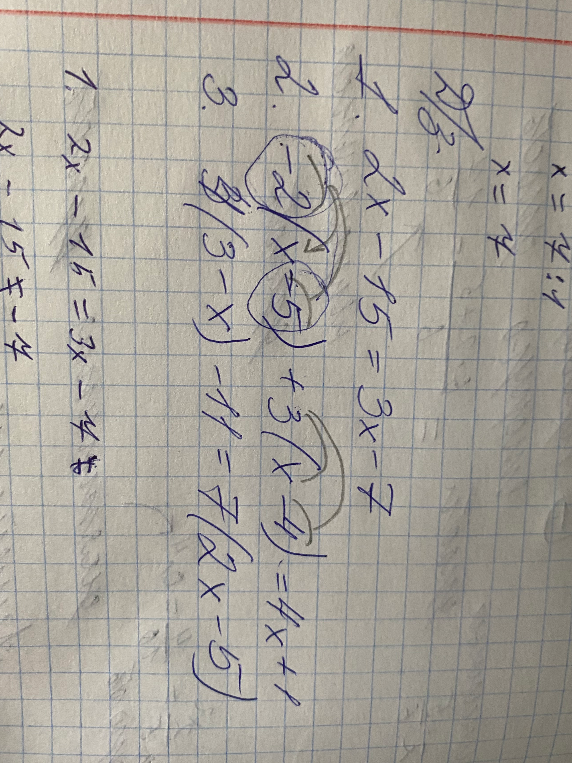 x = 4 : 1
x = 4
Д/З.
1. 2x - 15 = 3x - 7
2. -2(x-5) + 3(x-4) = 4x + 1
3. 3(3-x) - 11 = 7(2x-5)
1. 2x - 15 = 3x - 7
2x - 15